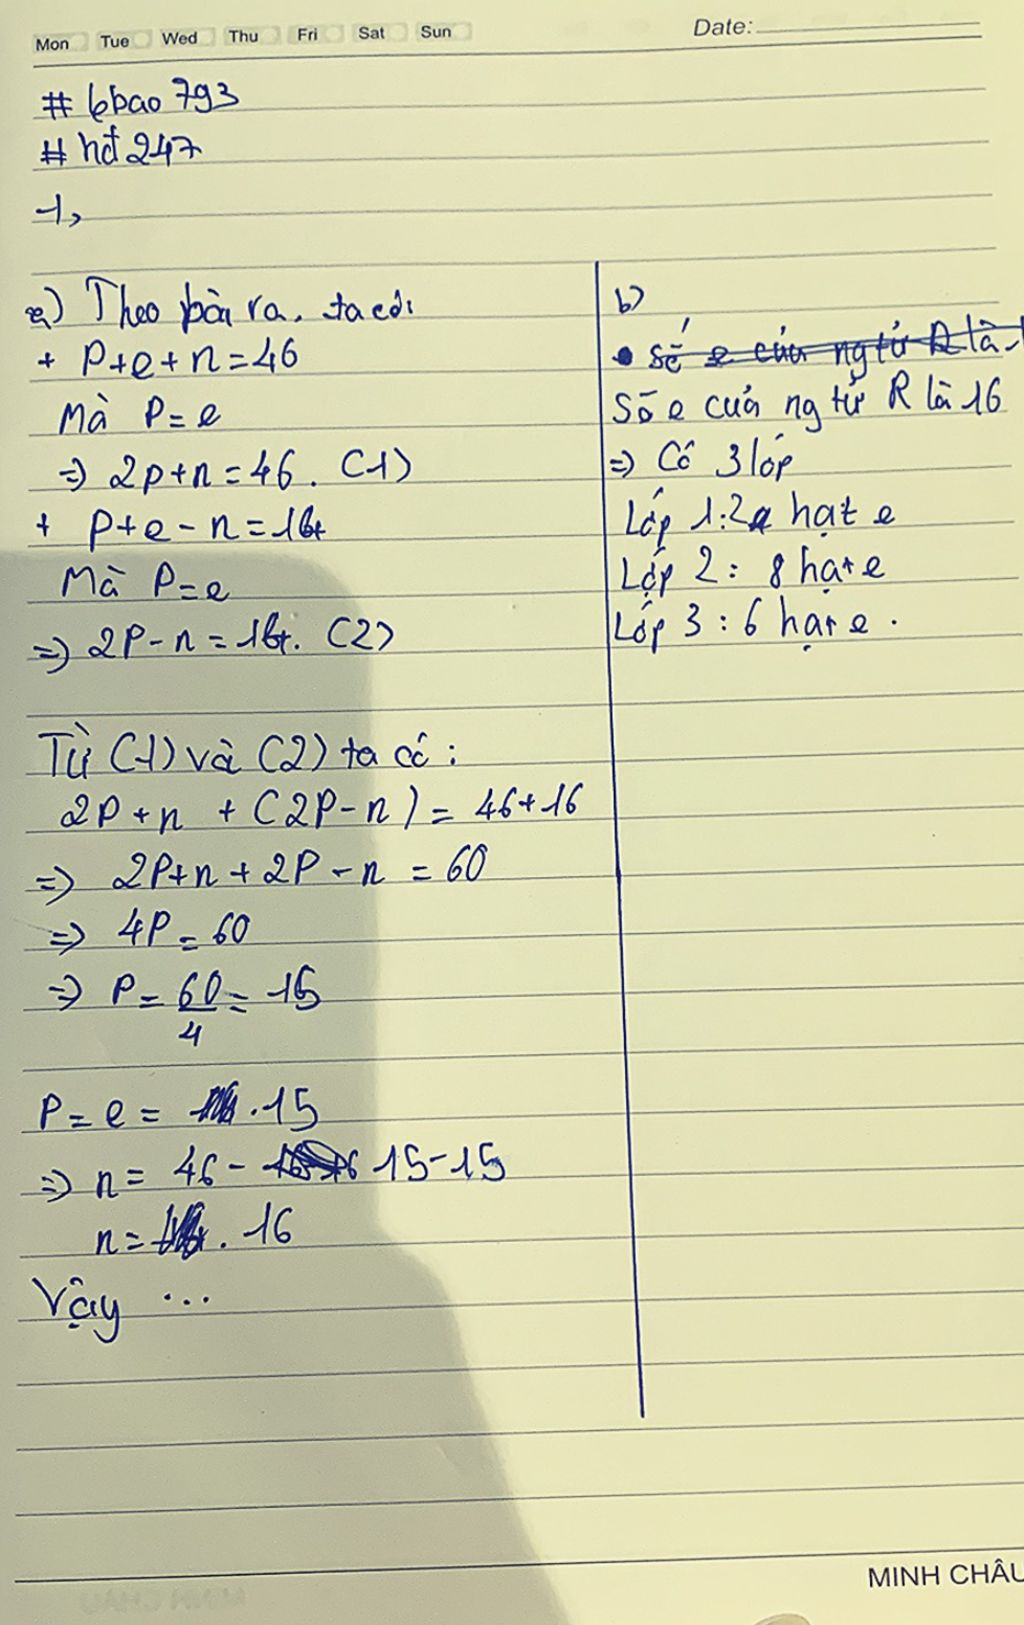 Mon Tue Wed Thu Fri Sat Sun Date:
# bbao 793
# hđ 247
1,
a) Theo bài ra, ta có:
+ P+e+n=46
Mà P=e
=> 2p+n=46. (1)
+ P+e-n=14
Mà P=e
=> 2P-n=14. (2)
Từ (1) và (2) ta có:
2P+n + (2P-n) = 46+16
=> 2P+n+2P-n = 60
=> 4P=60
=> P=60/4=15
P=e= .15
=> n= 46- 15-15
n= . 16
Vậy ...
b)
• Số e của ng tử R là
Số e của ng tử R là 16
=> Có 3 lớp
Lớp 1:2 hạt e
Lớp 2: 8 hạt e
Lớp 3: 6 hạt e.
MINH CHÂU